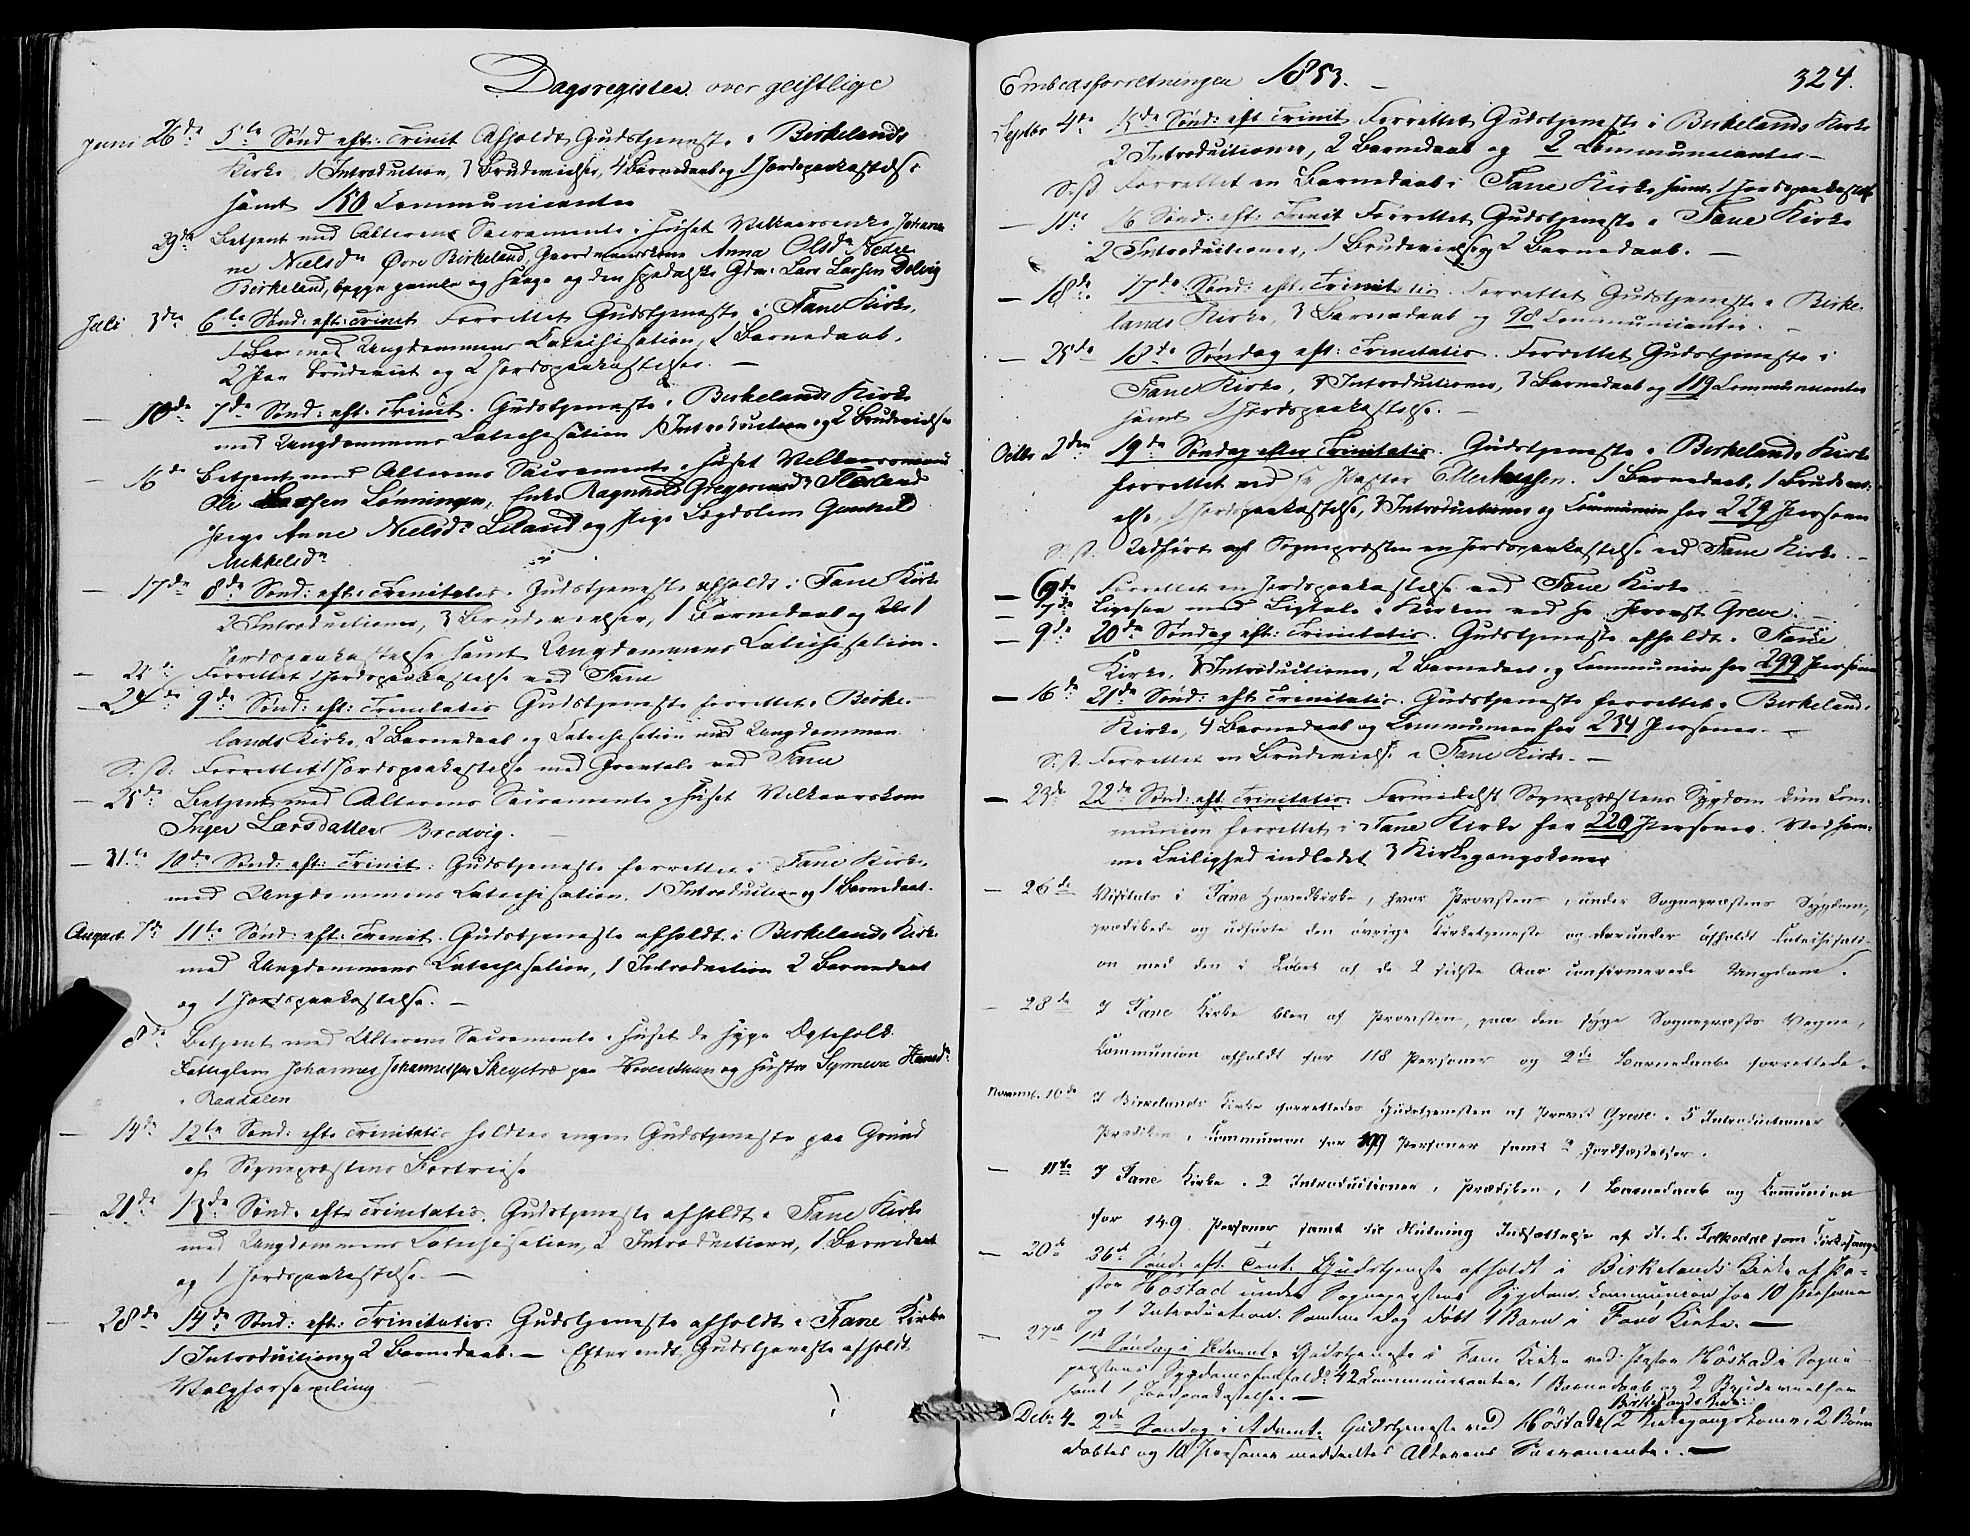 Dagsregister over geistlige
Juni 26de 5te Sønd: eft: Trinit Afholdt Gudstjeneste i Birkelands
Kirke, 1 Introduction, 3 Brudevielser, 4 Barnedaab og 1 Jordspaakastelse
samt 150 Communicanter
29de Betjent med Alterens Sacramente i Huset Johan-
ne Nielsdr Øvre Birkeland, Gaardmandskone Anna Olsdr Nedre
Birkeland, begge gamle og svage og den spedalske Gdm: Lars Larsen Dolvig
Juli 3die 6te Sønd: eft: Trinit Forrettet Gudstjeneste i Fane Kirke,
med Ungdommens Catechisation, 1 Barnedaab,
2 Par Brudeviet og 2 Jordspaakastelser. —
— 10de 7de Sønd: eft: Trinit. Gudstjeneste i Birkelands Kirke
med Ungdommens Catechisation 1 Introduction og 2 Brudevielser
— 16de Betjent med Alterens Sacramente i Huset Velkaarsmand
Ole Larsen Lønningen, Enke Ragnhild Gregoriusdr Flesland
Pige Anne Nielsdr Liland og Pige Lægdslem Gunhild
Mikkelsdr
— 17de 8de Sønd: eft: Trinitatis. Gudstjeneste afholdt i Fane Kirke
2 Introductioner, 3 Brudevielser, 1 Barnedaab og 1
Jordspaakastelse samt Ungdommens Catechisation.
— 22de Forrettet 1 Jordspaakastelse ved Fane
— 24de 9de Sønd: eft: Trinitatis Gudstjeneste forrettet i Birke-
lands Kirke, 2 Barnedaab og Catechisation med Ungdommen
S: D: Forrettet 1 Jordspaakastelse med Gravtale ved Fane
— 25de Betjent med Alterens Sacramente i Huset Velkaarskone
Inger Larsdatter Bredvig. —
— 31te 10de Sønd: eft: Trinit: Gudstjeneste forrettet i Fane Kirke
med Ungdommens Catechisation, 1 Introduction og 1 Barnedaab.
August 7de 11te Sønd: eft: Trinit. Gudstjeneste afholdt i Birkelands Kirke
med Ungdommens Catechisation, 1 Introduction 2 Barnedaab
og 1 Jordspaakastelse. —
8de Betjent med Alterens Sacramente i Huset de syge Ægtefolk
Fattiglem Johannes Johannessen Skeyetræ paa og Hustru Synneva Hansdr
i Raadalen
— 14de 12te Sønd: eft: Trinitatis holdtes ingen Gudstjeneste paa Grund
af Sognepræstens Bortreise
— 21de 13de Sønd: eft: Trinitatis. Gudstjeneste afholdt i Fane Kirke
med Ungdommens Catechisation, 2 Introductioner, 1 Barnedaab
og 1 Jordspaakastelse. —
— 28de 14de Sønd: eft: Trinitatis. Gudstjeneste afholdt i Fane Kirke
1 Introduction og 2 Barnedaab. — Efter endt Gudstjeneste afholdt
Valgforsamling
Embedsforretninger 1853. — 324.
Septbr 4de 15de Sønd: eft Trinit Forrettet Gudstjeneste i Birkelands Kirke
2 Introductioner, 2 Barnedaab og 2 Communicanter —
S: D. Forrettet en Barnedaab i Fane Kirke samt 1 Jordspaakastelse
— 11te 16 Sønd: eft: Trinit Forrettet Gudstjeneste i Fane Kirke
2 Introductioner, 1 Brudevielse og 2 Barnedaab. —
— 18de 17de Sønd: eft: Trinitatis. Forrettet Gudstjeneste i Birke-
lands Kirke, 3 Barnedaab og 98 Communicanter. —
— 25de 18de Søndag eft: Trinitatis. Forrettet Gudstjeneste i
Fane Kirke, Introductioner, 3 Barnedaab og 119 Communicanter
samt 1 Jordspaakastelse. —
Octbr 2den 19de Søndag efter Trinitatis. Gudstjeneste i Birkelands Kirke
forrettet ved Hr Pastor Ellerhussen. 1 Barnedaab, 1 Brudevi-
else, 1 Jordspaakastelse, 3 Introductioner og Communion for 229 Personer
S: D. Udført af Sognepræsten en Jordspaakastelse ved Fane Kirke. —
— 6te Forrettet en Jordspaakastelse ved Fane Kirke
— 7de Ligesaa med Ligtale i Kirken ved Hr Provst Greve.
— 9de 20de Søndag eft: Trinitatis. Gudstjeneste afholdt i Fane
Kirke, 3 Introductioner, 2 Barnedaab og Communion for 299 Personer
— 16de 21de Sønd: eft: Trinitatis. Gudstjeneste forrettet i Birkelands
Kirke, 4 Barnedaab og Communion for 234 Personer. —
S: D. Forrettet en Brudevielse i Fane Kirke. —
— 23de 22de Sønd: eft: Trinitatis. Formedelst Sognepræstens Sygdom kun Com-
munion forrettet i Fane Kirke for 220 Personer. Ved sam-
me Leilighed indledet 3 Kirkegangskoner
— 26de Visitats i Fane Hovedkirke, hvor Provsten, under Sognepræstens Sygdom,
prædikede og udførte den øvrige Kirketjeneste og derunder afholdt Catechisati-
on med den i Løbet af de 2 sidste Aar confirmerede Ungdom.
— 28de I Fane Kirke blev af Provsten, paa den syge Sognepræsts Vegne,
Communion afholdt for 118 Personer og 2de Barnedaabe forrettede.
Novemb. 10de I Birkelands Kirke forrettedes Gudstjenesten af Provst Greve. 5 Introductioner,
Prædiken, Communion for 199 Personer samt 2 Jordfæstelser.
— 11te I Fane Kirke. 2 Introductioner, Prædiken, 1 Barnedaab og Communion
for 149 Personer samt Indsættelse af Folkedal som Kirkesanger
— 20de 26de Sønd: eft. Trint. Gudstjeneste afholdt i Birkelands Kirke af Pa-
stor Høstad under Sognepræstens Sygdom. Communion for 10 Personer
og 1 Introduction. Samme Dag døbt 1 Barn i Fane Kirke. —
— 27de 1ste Søndag i Advent. Gudstjeneste i Fane Kirke ved Pastor Høstad i Sogne-
præstens Sygdomsforfald. 42 Communicanter, 1 Barnedaab og 2 Brudevielser
samt 1 Jordpaakastelse. —
Birkelands Kirke:
Decbr 4de 2de Søndag i Advent. Gudstjeneste ved Høstad. 2 Kirkegangskoner, 2 Børn
døbtes og 10 Personer meddeeltes Alterens Sacramente. —